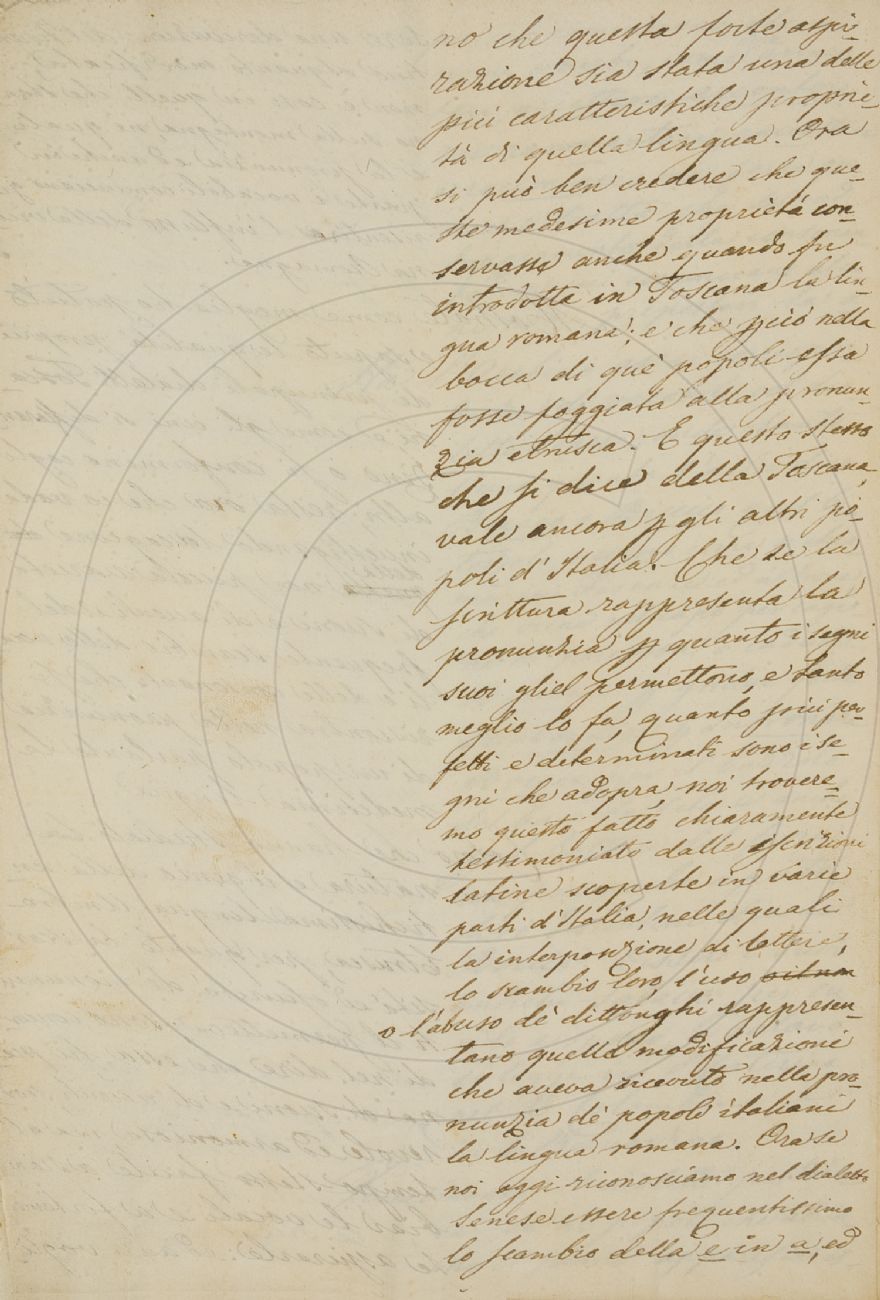 no che questa forte aspi-
razione sia stata una delle
più caratteristiche proprie-
tà di quella lingua. Ora
si può ben credere che que-
ste medesime proprietà con-
servasse anche quando fu
introdotta in Toscana la lin-
gua romana; e che pciò nella
bocca di què popoli essa
fosse foggiata alla pronun-
zia etrusca. E questo stesso
che si dice della Toscana,
vale ancora p gli altri pò-
poli d'Italia. Che se la
scrittura rappresenta la
pronunzia p quanto i segni
suoi gliel permettono, e tanto
meglio lo fa, quanto più per-
fetti e determinati sono i se-
gni che adopra, noi trovere-
mo questo fatto chiaramente
testimoniato dalle iscrizioni
latine scoperte in varie
parti d'Italia, nelle quali
la interposizione di lettere,
lo scambio loro, l'uso
o l'abuso dè dittonghi rappresen-
tano quella modificazione
che aveva ricevuto nella pro-
nunzia dè popoli italiani
la lingua romana. Ora se
noi oggi riconosciamo nel dialetto
Senese essere frequentissimo
lo scambio della e in a, ed